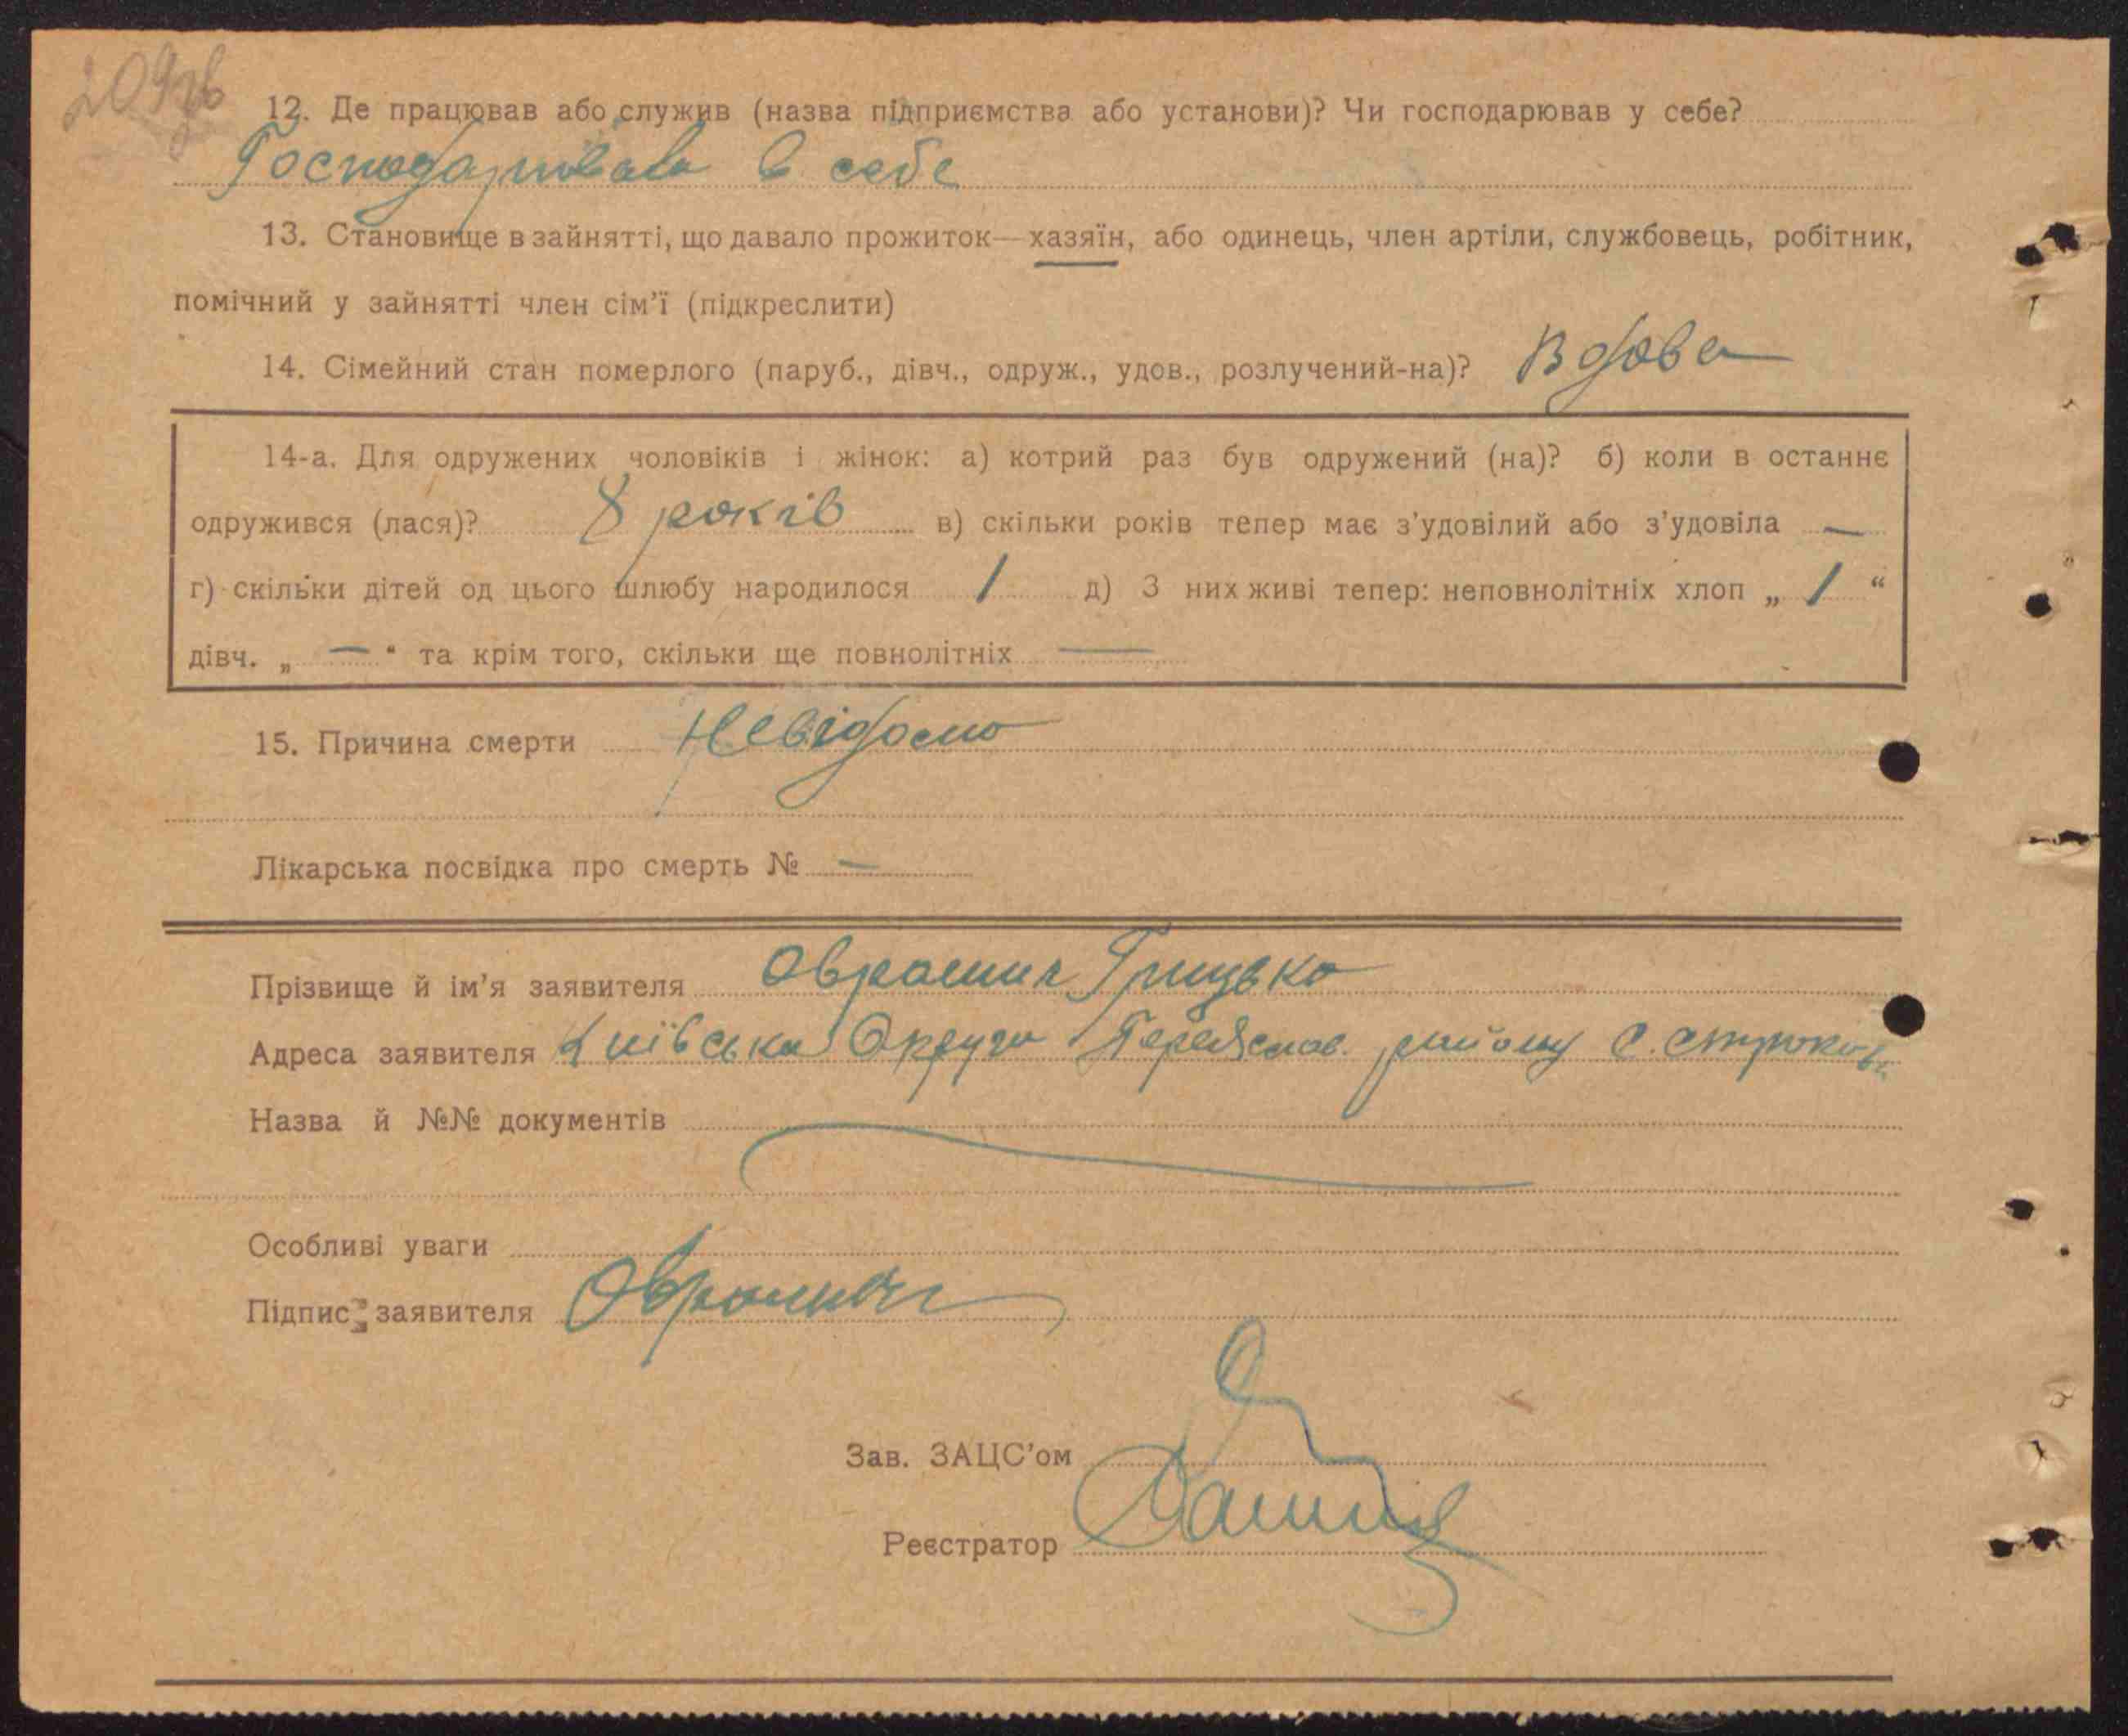 209зв
12. Де працював або служив (назва підприємства або установи)? Чи господарював у себе?
Господарювала в себе
13. Становище в зайнятті, що давало прожиток—хазяїн, або одинець, член артіли, службовець, робітник,
помічний у зайнятті член сім'ї (підкреслити)
14. Сімейний стан померлого (паруб., дівч., одруж., удов., розлучений-на)? Вдова
14-а. Для одружених чоловіків і жінок: а) котрий раз був одружений (на)? б) коли в останнє
одружився (лася)? 8 років в) скільки років тепер має з'удовілий або з'удовіла —
г) скільки дітей од цього шлюбу народилося 1 д) З них живі тепер: неповнолітніх хлоп „ 1 “
дівч. „ — “ та крім того, скільки ще повнолітніх —
15. Причина смерти Невідомо
Лікарська посвідка про смерть № —
Прізвище й ім'я заявителя Оврамич Грицько
Адреса заявителя Київська Округа Переяслав. району С. Строкова
Назва й №№ документів
Особливі уваги
Підпис заявителя Оврамич
Зав. ЗАЦС'ом
Реєстратор